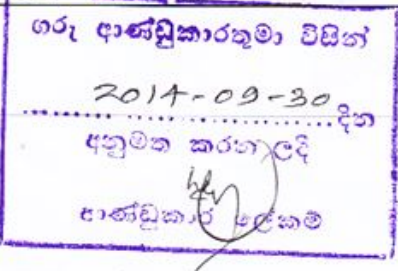 ගරු ආණ්ඩුකාරතුමා විසින්
2014-09-30
....................................දින
අනුමත කරන ලදි
ආණ්ඩුකාර ලේකම්